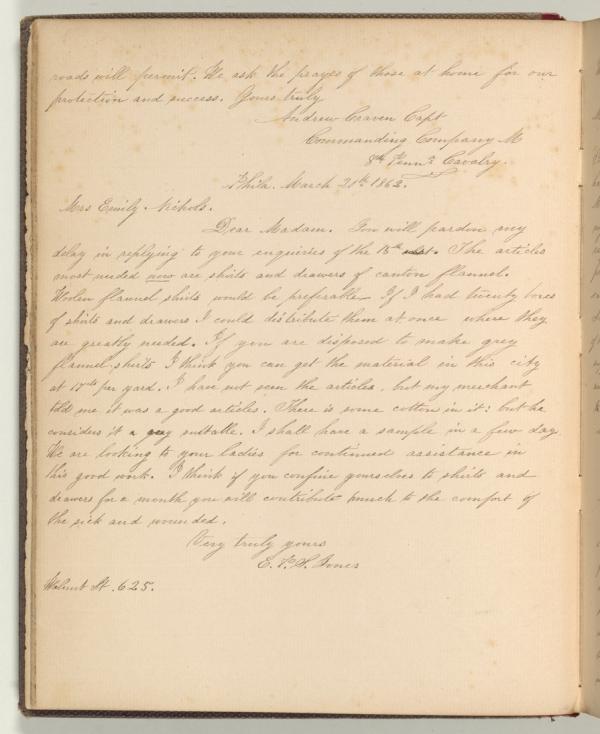 roads will permit. We ask the prayes of those at home for our
protection and success. Yours truly
Andrew Craven Capt
Commanding Company M
8th Penna Cavalry.
Phila. March 21th 1862.
Mrs Emily Nichols.
Dear Madam. You will pardon my
delay in replying to your enquiries of the 18th The articles
most needed now are shirts and drawers of canton flannel.
Woolen flannel shirts would be preferable. If I had twenty boxes
of shirts and drawers I could distribute them at once where they
are greatly needed. If you are disposed to make grey
flannel shirts I think you can get the material in this city
at 17cts per yard. I have not seen the articles, but my merchant
told me it was a good articles. There is some cotton in it: but he
considers it suitable. I shall have a sample in a few day
We are looking to your ladies for continued assistance in
this good work. I think if you confine yourselves to shirts and
drawers for a month you will contribute much to the comfort of
the sick and wounded.
Very truly yours
E. S. Jones
Walnut St. 625.